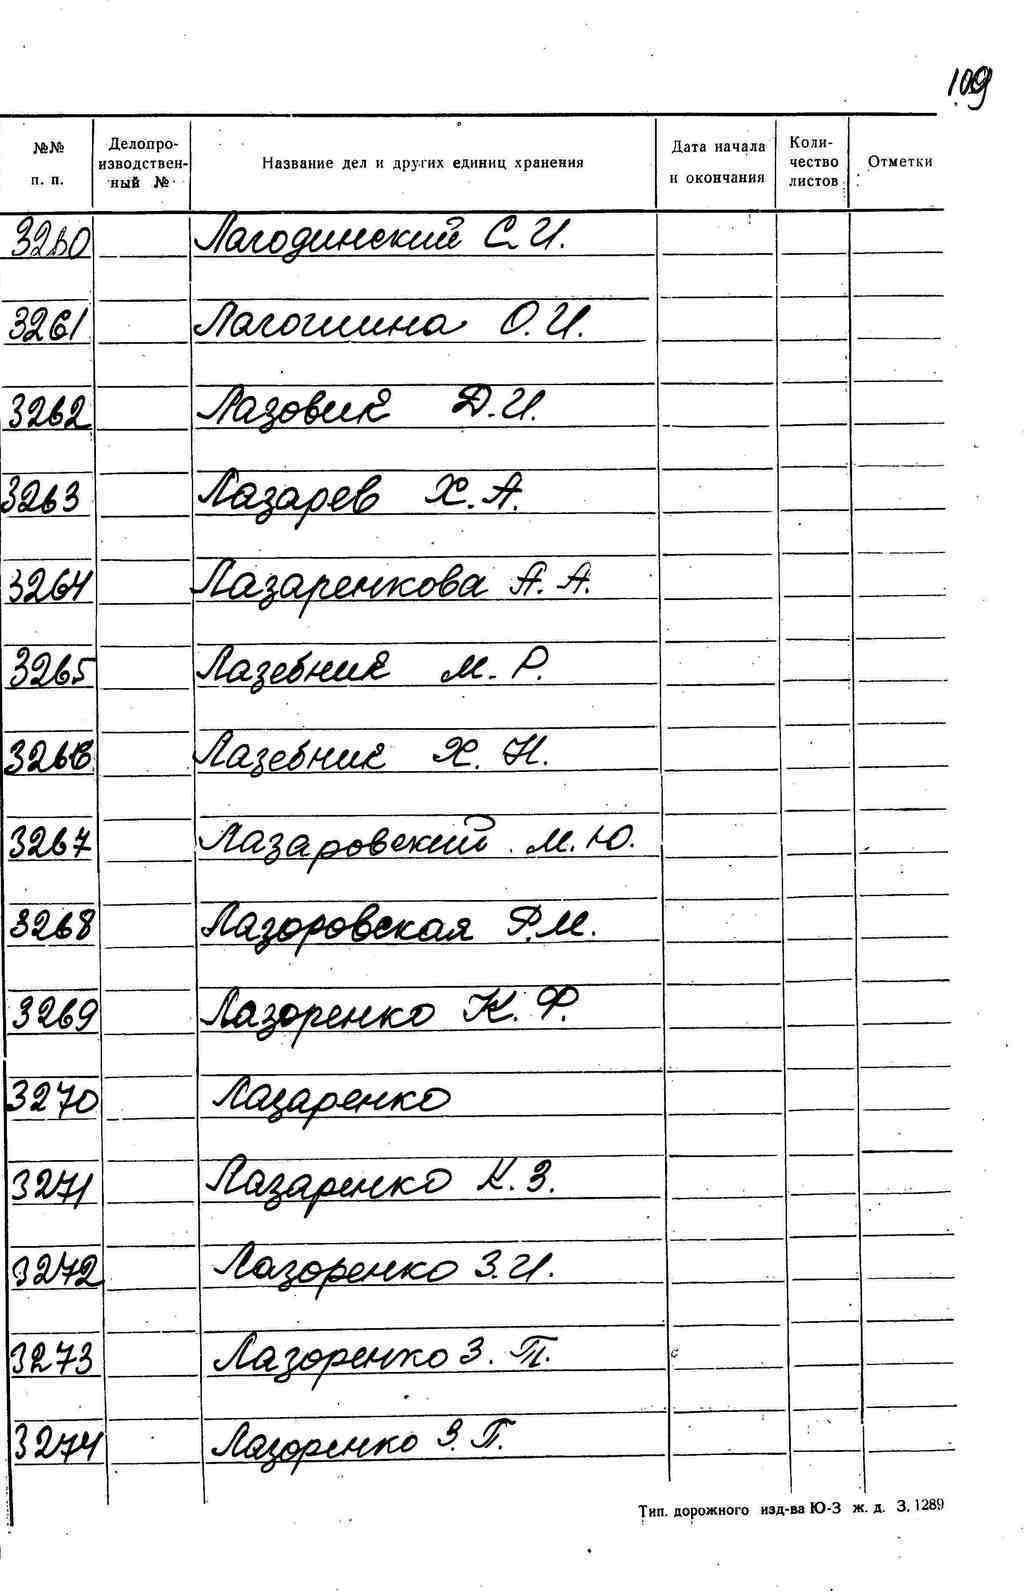 109
№№ п. п. Делопроизводственный № Название дел и других единиц хранения Дата начала и окончания Количество листов Отметки
3260 Лагодинский С.И.
3261 Лагошина О.И.
3262 Лазовик Д.И.
3263 Лазарев Х.А.
3264 Лазаренкова А.А.
3265 Лазебник М.Р.
3266 Лазебник Х.Н.
3267 Лазаровский М.Ю.
3268 Лазоровская Р.М.
3269 Лазоренко К.Ф.
3270 Лазаренко
3271 Лазаренко К.З.
3272 Лазоренко З.И.
3273 Лазоренко З.Т.
3274 Лазоренко З.П.
Тип. дорожного изд-ва Ю-З ж. д. З. 1289